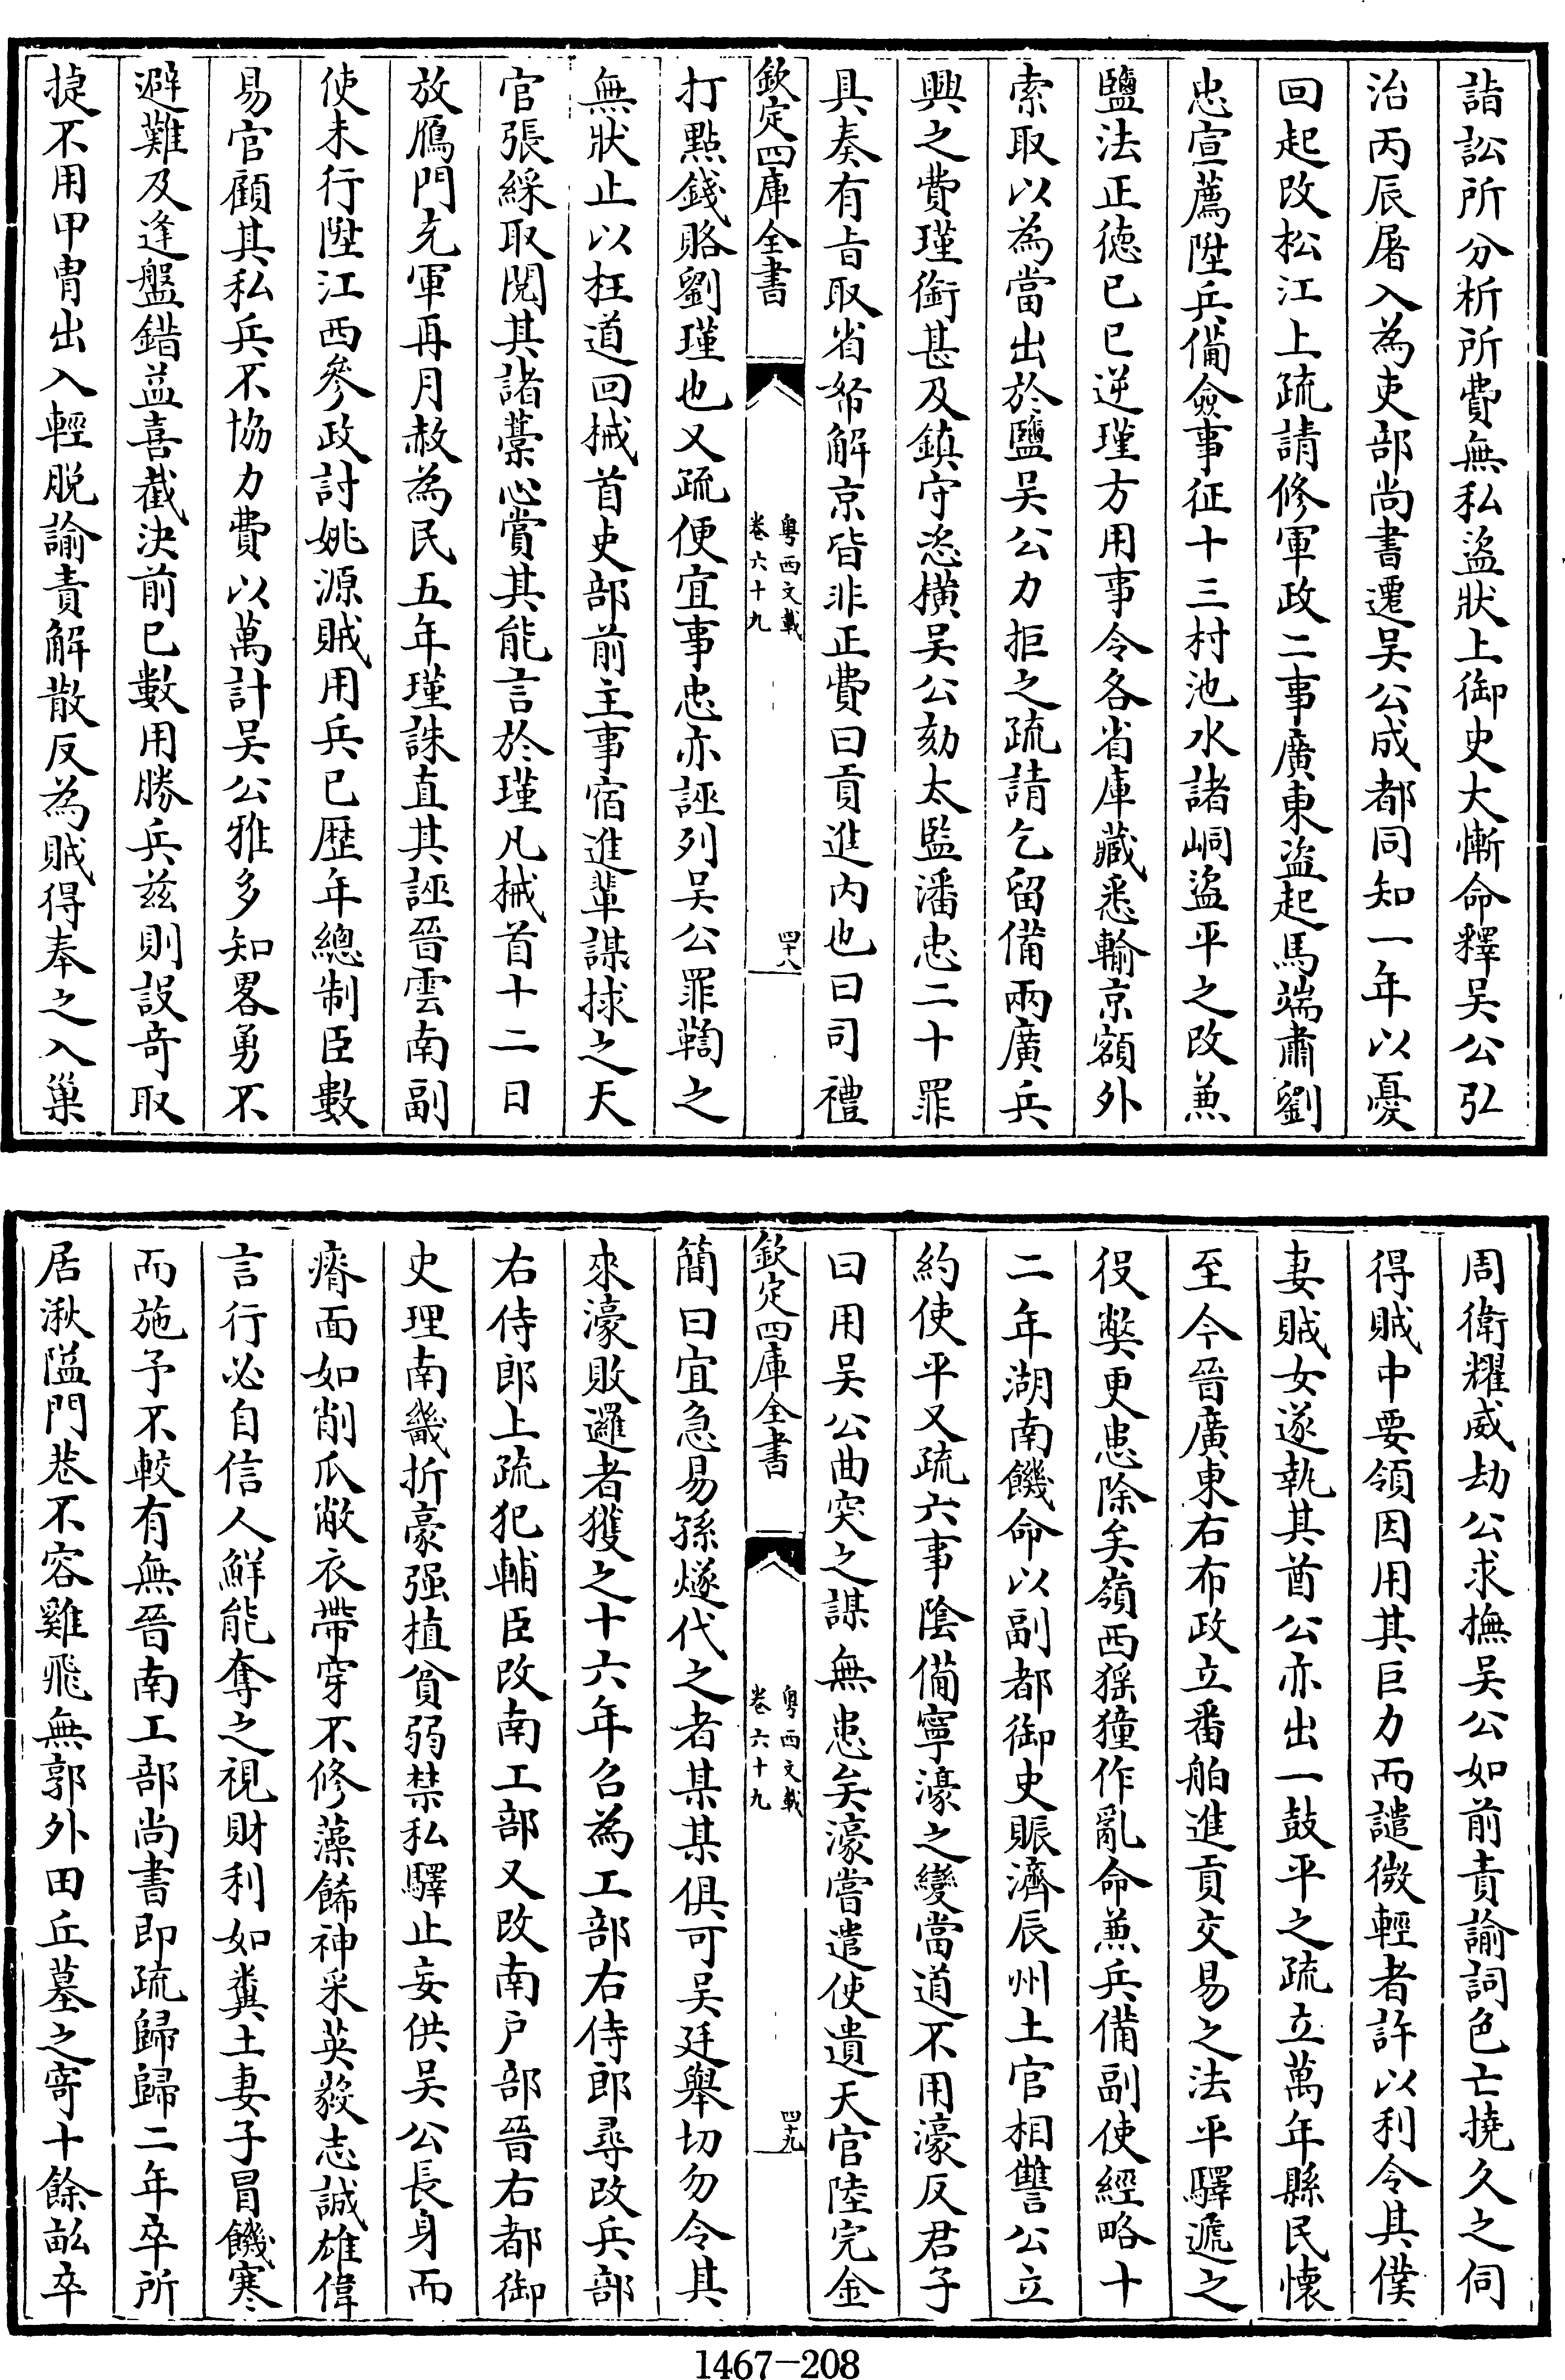 詣訟所分析所費無私盜狀上御史大慚命釋吳公弘
治丙辰屠入為吏部尚書遷吳公成都同知一年以憂
回起改松江上疏請修軍政二事廣東盜起馬端肅劉
忠宣薦陞兵備僉事征十三村池水諸峒盜平之改兼
鹽法正德已巳逆瑾方用事令各省庫藏悉輸京額外
索取以為當出於鹽吳公力拒之疏請乞留備兩廣兵
興之費瑾銜甚及鎮守恣橫吳公劾太監潘忠二十罪
具奏有㫖取省帑解京皆非正費曰貢進內也曰司禮
欽定四庫全書
粵西文載
卷六十九
四十八
打點錢賂劉瑾也又疏便宜事忠亦誣列吳公罪鞫之
無狀止以枉道回械首吏部前主事宿進輩謀捄之天
官張綵取閱其諸藁心賞其能言於瑾凡械首十二日
放鴈門充軍再月赦為民五年瑾誅直其誣晉雲南副
使未行陞江西參政討姚源賊用兵已歷年總制臣數
易官顧其私兵不協力費以萬計吳公雅多知畧勇不
避難及逢盤錯益喜截決前已數用勝兵茲則設奇取
捷不用甲冑出入輕脱諭責解散反為賊得奉之入巢
周衛耀威劫公求撫吳公如前責諭詞色亡撓久之伺
得賊中要領因用其巨力而譴微輕者許以利令其僕
妻賊女遂執其酋公亦出一鼓平之疏立萬年縣民懐
至今晉廣東右布政立番舶進貢交易之法平驛遞之
役弊更患除矣嶺西猺獞作亂命兼兵備副使經略十
二年湖南饑命以副都御史賑濟辰州土官相讐公立
約使平又疏六事陰備寧濠之變當道不用濠反君子
曰用吳公曲突之謀無患矣濠嘗遣使遺天官陸完金
欽定四庫全書
粵西文載
卷六十九
四十九
簡曰宜急易孫燧代之者某某俱可吳廷舉切勿令其
來濠敗邏者獲之十六年召為工部右侍郎尋改兵部
右侍郎上疏犯輔臣改南工部又改南户部晉右都御
史理南畿折豪强植貧弱禁私驛止妄供吳公長身而
瘠面如削瓜敝衣帶穿不修藻餙神采英毅志誠雄偉
言行必自信人鮮能奪之視財利如糞土妻子冒饑寒
而施予不較有無晉南工部尚書即疏歸歸二年卒所
居湫隘門巷不容雞飛無郭外田丘墓之寄十餘畝卒
1467-208